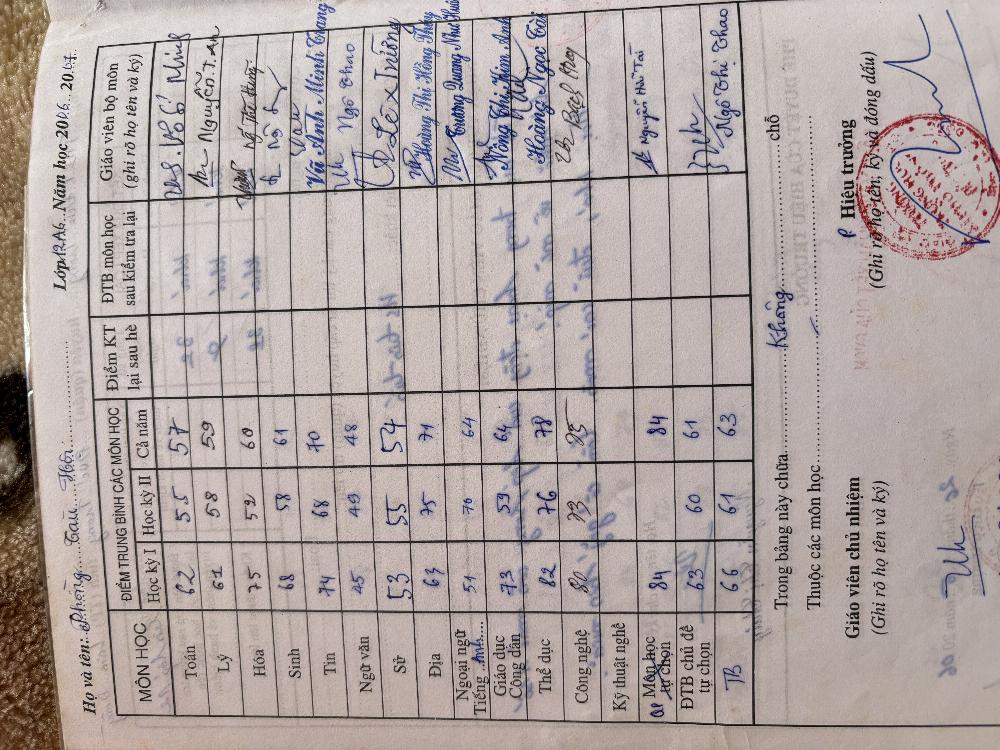 Họ và tên: Phùng Tấn Hội Lớp 12A6 Năm học 2006 2007
MÔN HỌC ĐIỂM TRUNG BÌNH CÁC MÔN HỌC Điểm KT lại sau hè ĐTB môn học sau kiểm tra lại Giáo viên bộ môn (ghi rõ họ tên và ký)
Học kỳ I Học kỳ II Cả năm
Toán 62 55 57
Lý 61 58 59 Nguyễn T. An
Hóa 75 52 60
Sinh 68 58 61 Vũ Anh Minh Trang
Tin 74 68 70 Ngô Thao
Ngữ văn 45 49 48 Lê X Trường
Sử 53 55 54 Hoàng Thị Hồng Thúy
Địa 63 75 71 Trương Quang Như
Ngoại ngữ Tiếng Anh 51 70 64 Nông Thị Kim Anh
Giáo dục Công dân 73 59 64 Hoàng Ngọc Tài
Thể dục 82 76 78
Công nghệ 80 73 75
Kỹ thuật nghề
QP Môn học tự chọn 84 84 Nguyễn Hữu Tài
ĐTB chủ đề tự chọn 63 60 61
TB 66 61 63 Ngô Thị Thao
Trong bảng này chữa Không chỗ
Thuộc các môn học
Giáo viên chủ nhiệm
(Ghi rõ họ tên và ký)
P Hiệu trưởng
(Ghi rõ họ tên, ký và đóng dấu)